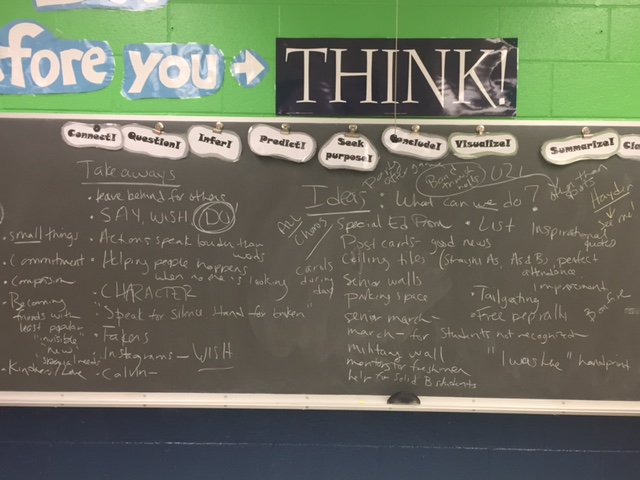 efore you → THINK!
Connect!
Question!
Infer!
Predict!
Seek purpose!
Conclude!
Visualize!
Summarize!
Cla
Takeaways
• leave behind for others
• SAY, WISH DO
• Actions speak louder than words
• Helping people happens when no one is looking
• CHARACTER
• "Speak for silence stand for broken"
• Fakers
• Instagrams - WISH
• Calvin -
• small things
• Commitment
• Compassion
• Becoming friends with least popular
"invisible"
new
special needs
• Kindness/Love
Ideas • What can we do?
ALL Chorus
Special Ed Prom
Post cards - good news
cards during day
Ceiling tiles (straight As, As & Bs, perfect attendance
improvement
Senior walls
parking space
senior march -
march - for students not recognized
military wall
mentors for freshmen
help for solid B students
• List Inspirational quotes
• Tailgating
• Free pep rally
"I was here" handprint
other than sports
Hayden
see me!